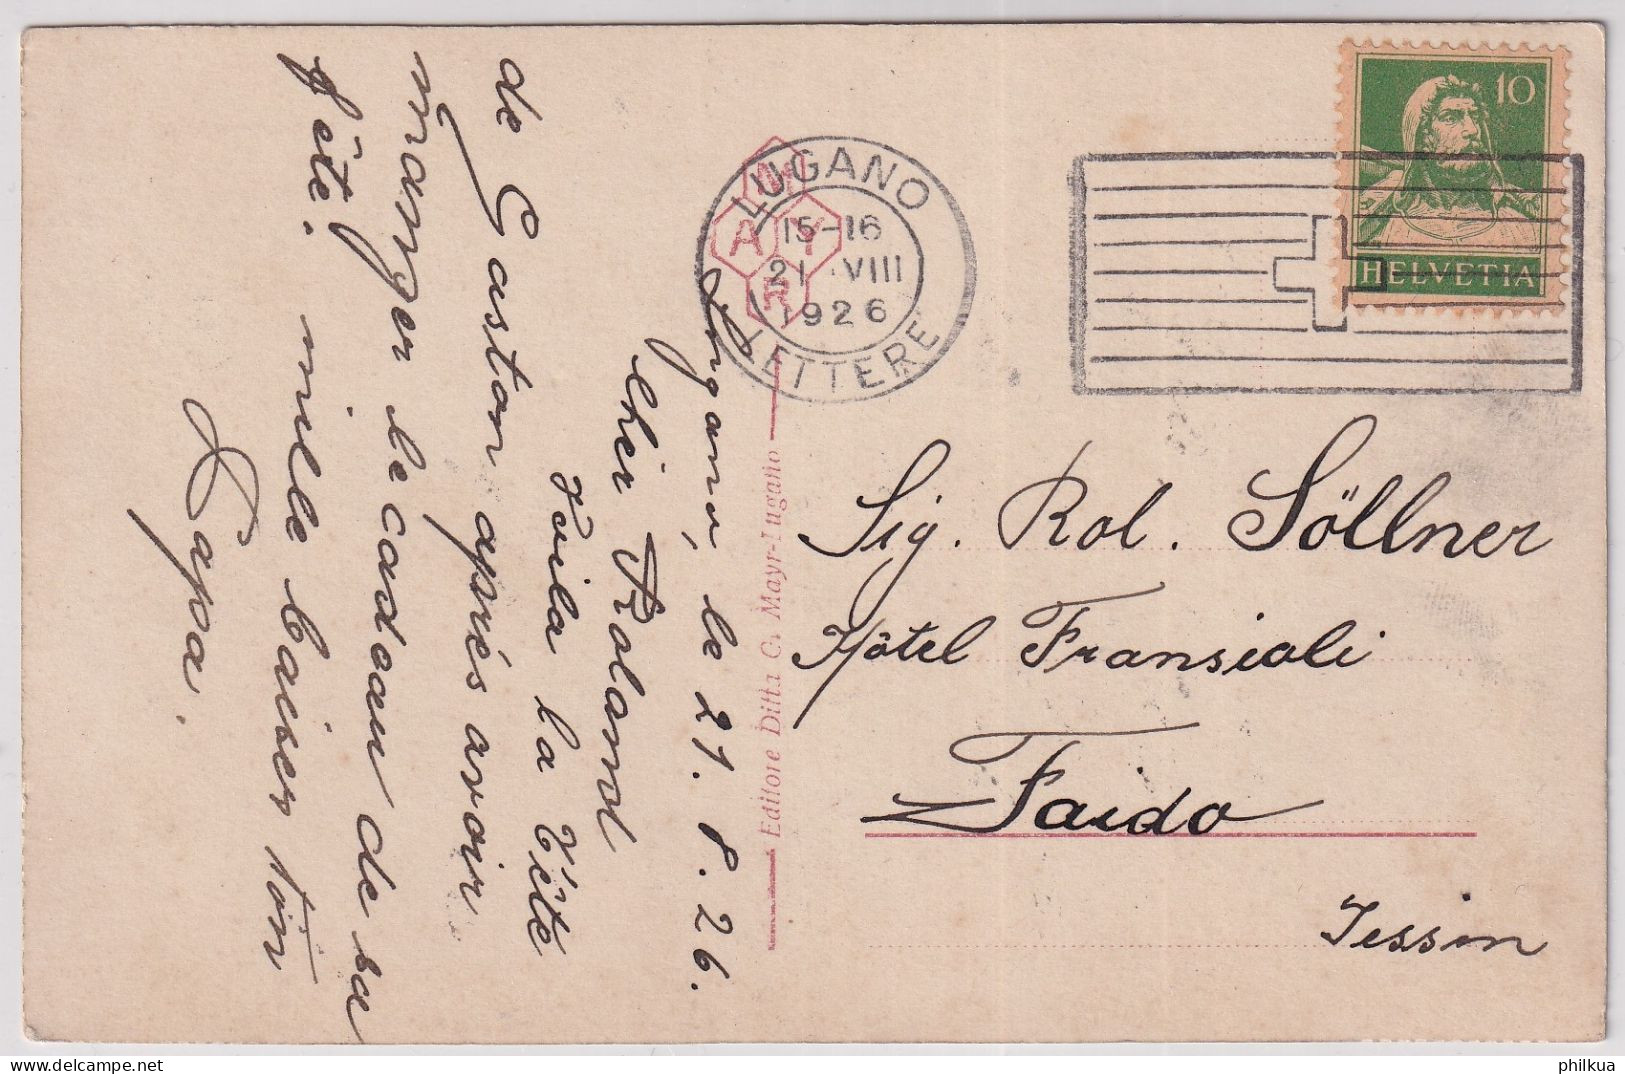 Lugano, le 21. 8. 26.
Cher Roland
Voila la tête
de Gaston après avoir
manger le cadeau de sa
fête. mille baiser ton
Papa.
LUGANO
15-16
21.VIII
1926
LETTERE
M
A Y
R
10
HELVETIA
Editore Ditta C. Mayr-Lugano
Sig. Rol. Söllner
Hôtel Fransioli
Faido
Tessin
philkua